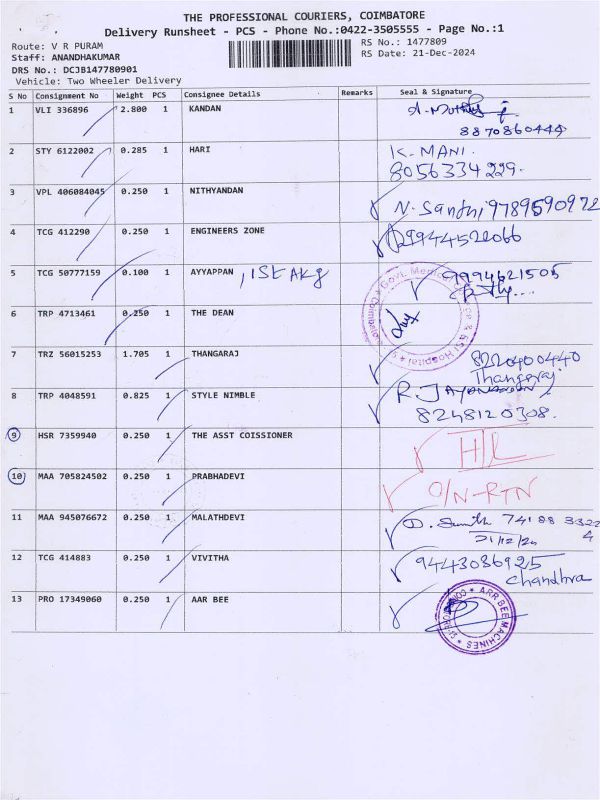 THE PROFESSIONAL COURIERS, COIMBATORE
Delivery Runsheet - PCS - Phone No.:0422-3505555 - Page No.:1
Route: V R PURAM
RS No.: 1477809
Staff: ANANDHAKUMAR
RS Date: 21-Dec-2024
DRS No.: DCJB147780901
Vehicle: Two Wheeler Delivery
S No Consignment No Weight PCS Consignee Details Remarks Seal & Signature
1 VLI 336896 2.800 1 KANDAN
8870860444
2 STY 6122002 0.285 1 HARI K. MANI.
8056334229.
3 VPL 406084045 0.250 1 NITHYANDAN N. Santhi 9789590972
4 TCG 412290 0.250 1 ENGINEERS ZONE 9944522066
5 TCG 50777159 0.100 1 AYYAPPAN 9994621505
6 TRP 4713461 0.250 1 THE DEAN
7 TRZ 56015253 1.705 1 THANGARAJ 8220400440
Thangaraj
8 TRP 4048591 0.825 1 STYLE NIMBLE
8248120308.
9 HSR 7359940 0.250 1 THE ASST COISSIONER
10 MAA 705824502 0.250 1 PRABHADEVI O/N-RTN
11 MAA 945076672 0.250 1 MALATHDEVI 74188 3322
4
21/12/24
12 TCG 414883 0.250 1 VIVITHA 9443086925
Chandhra
13 PRO 17349060 0.250 1 AAR BEE
ARR BEE MACHINES